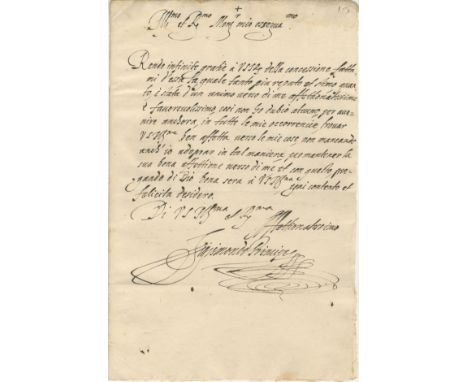 +
Ill.mo et R.mo Mons.r mio osser.mo
Rendo infinite gratie à V S Ill.ma della concessione fatta
mi d'esta la quale tanto più reputo et stimo quan
to è stata d'un animo verso di me affettionatissimo
è favorevolissimo, così non ho dubio alcuno, per ave
nire ancora, in tutte le mie occorrenze trovar
V S Ill.ma ben affetta verso le mie cose non mancando
anch'io adoprar in tal maniera per mantener la
sua bona affettione verso di me et con questo pre
gando di Dio bona sera à V S Ill.ma ogni contento et
felicità desidero.
Di V S Ill.ma et R.ma
Affettionatissimo
Sigismondo